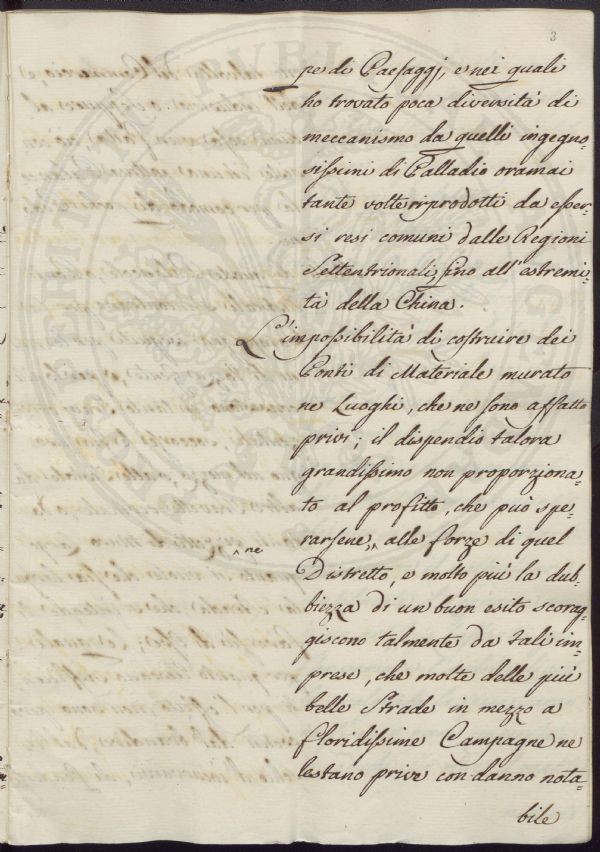 3
pe di Paesaggj, e nei quali
ho trovato poca diversità di
meccanismo da quelli ingegno=
sissimi di Palladio oramai
tante volte riprodotti da esser=
si resi comuni dalle Regioni
Settentrionali sino all'estremi=
tà della China.
L'impossibilità di costruire dei
Ponti di Materiale murato
ne Luoghi, che ne sono affatto
privi; il dispendio talora
grandissimo non proporziona=
to al profitto, che può spe=
rarsene, ^ alle forze di quel
^ ne
Distretto, e molto più la dub=
biezza di un buon esito scorag=
giscono talmente da tali im=
prese, che molte delle più
belle Strade in mezzo a
floridissime Campagne ne
restano prive con danno nota=
bile